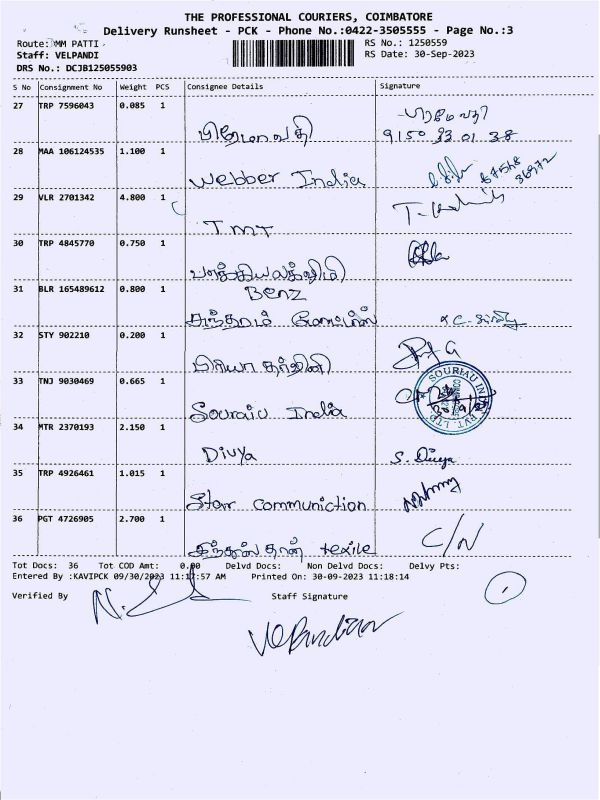 THE PROFESSIONAL COURIERS, COIMBATORE
Delivery Runsheet - PCK - Phone No.:0422-3505555 - Page No.:3
Route: MM PATTI
RS No.: 1250559
Staff: VELPANDI
RS Date: 30-Sep-2023
DRS No.: DCJB125055903
S No Consignment No Weight PCS Consignee Details Signature
27 TRP 7596043 0.085 1
9150 33 01 38
28 MAA 106124535 1.100 1
Webber India
29 VLR 2701342 4.800 1
TMT
30 TRP 4845770 0.750 1
பாக்கியலக்ஷ்மி
31 BLR 165489612 0.800 1 Benz
சுந்தரம்
32 STY 902210 0.200 1
பிரியா தர்ஷினி
33 TNJ 9030469 0.665 1
SOURIAU INDIA PVT. LTD.
Souraiu India
34 MTR 2370193 2.150 1
Divya S. Divya
35 TRP 4926461 1.015 1
Starr Communiction
36 PGT 4726905 2.700 1
C/N
இந்துஸ்தான் texile
Tot Docs: 36 Tot COD Amt: 0.00 Delvd Docs: Non Delvd Docs: Delvy Pts:
Entered By :KAVIPCK 09/30/2023 11:17:57 AM Printed On: 30-09-2023 11:18:14
Verified By Staff Signature